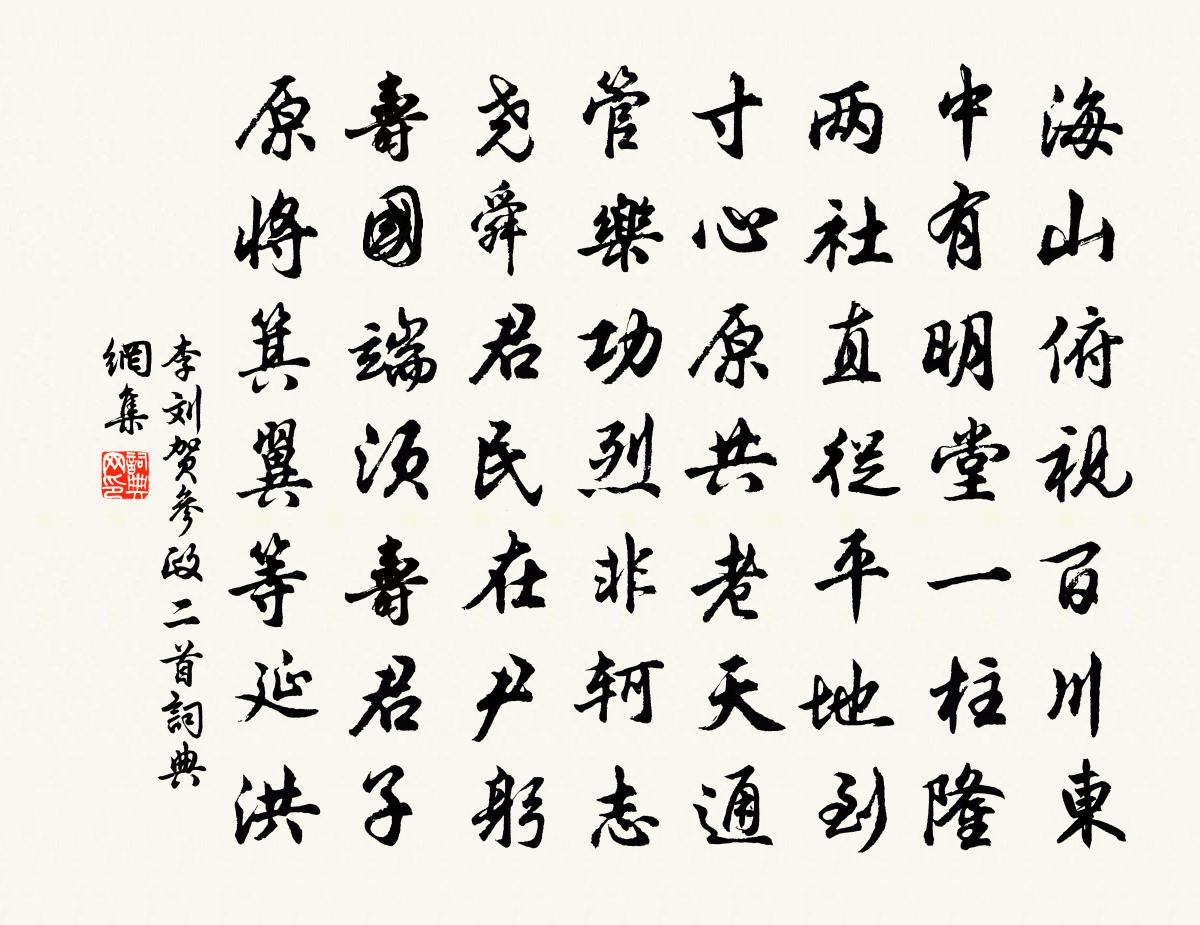 海山俯視百川東
中有明堂一柱隆
两社直從平地到
寸心原共老天通
管樂功烈非軻志
尧舜君民在尹躬
壽國端須壽君子
原將箕翼等延洪
李刘贺參政二首詞典
網集
詞典網印